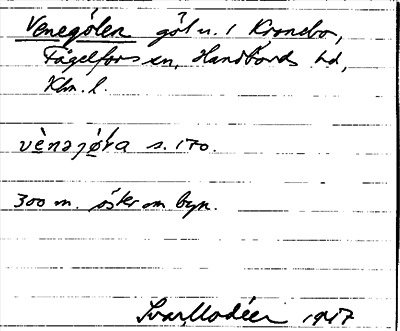 Venegölen göl n. i Kronebo,
Fågelfors sn, Handbörds hd,
Klm. l.
vènəjö̀ḷa s. 170.
300 m. öster om byn.
Ivar Modéer 1917